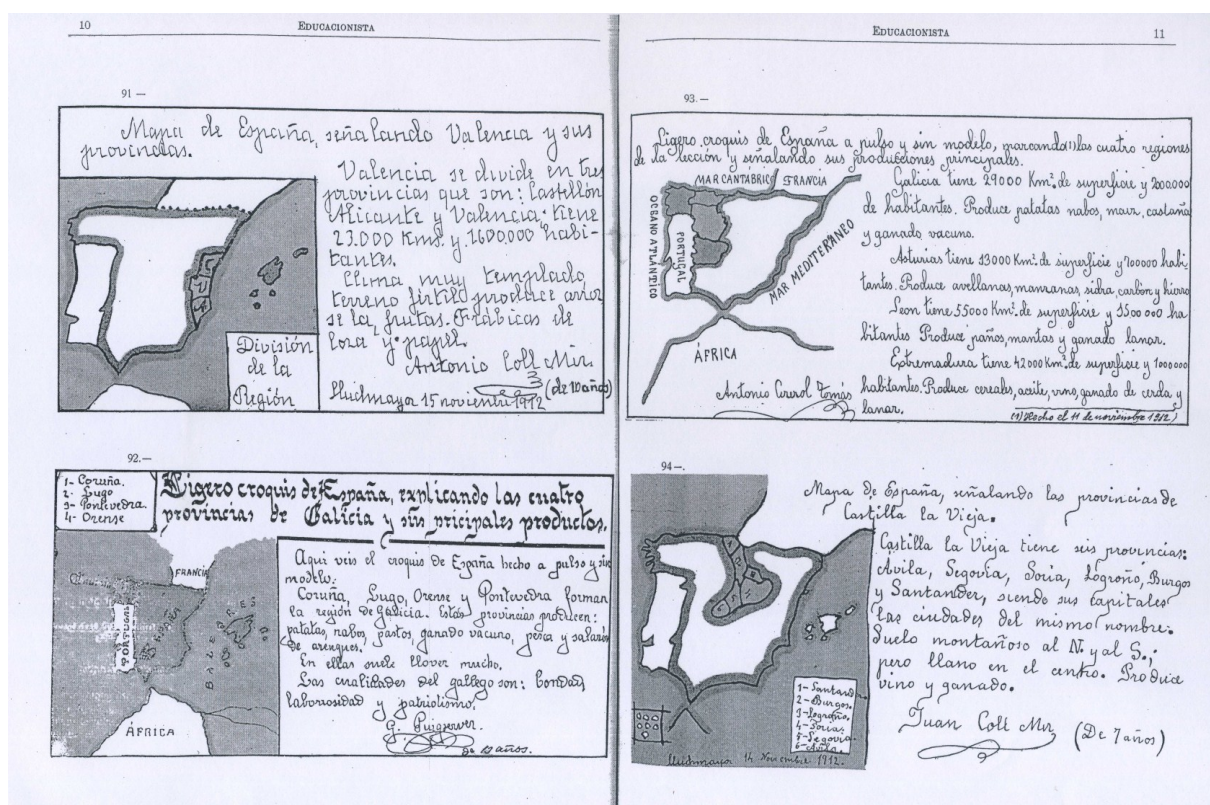 10
EDUCACIONISTA
91 —
Mapa de España, señalando Valencia y sus
provincias.
Valencia se divide en tres
provincias que son: Castellón
Alicante y Valencia tiene
23.000 Kms. y 1600.000 habi-
tantes.
Clima muy templado,
terreno fértil produce arroz
se la frutas. Frábicas de
loza y papel.
Antonio Coll Mir
(de 10 años)
Lluchmayor 15 noviembre 1912
División
de la
Región
92.—
1- Coruña.
2- Lugo
3- Pontevedra.
4- Orense
Ligero croquis de España, explicando las cuatro
provincias de Galicia y sus pricipales productos.
Aqui veis el croquis de España hecho a pulso y sin
modelo.
Coruña, Lugo, Orense y Pontevedra forman
la región de Galicia. Estas provincias producen:
patatas, nabos, pastos, ganado vacuno, pesca y salazón
de arenques.
En ellas suele llover mucho.
Las cualidades del gallego son: bondad,
laboriosidad y patriotismo.
G. Puigserver
de años.
FRANCIA
PORTUGAL
ESPAÑA
BALEARES
ÁFRICA
EDUCACIONISTA
11
93.—
Ligero croquis de España a pulso y sin modelo, marcando(1) las cuatro regiones
de la lección y señalando sus producciones principales.
MAR CANTABRICO
FRANCIA
OCEANO ATLÁNTICO
PORTUGAL
MAR MEDITERRÁNEO
ÁFRICA
Galicia tiene 29000 Km². de superficie y 2000000
de habitantes. Produce patatas nabos, maiz, castaña
y ganado vacuno.
Asturias tiene 13000 Km². de superficie y 700000 habi-
tantes. Produce avellanas, manzanas, sidra, carbón y hierro
Leon tiene 55000 Km². de superficie y 1500 000 ha
bitantes Produce paños, mantas y ganado lanar.
Extremadura tiene 42000 Km². de superficie y 1000000
habitantes. Produce cereales, aceite, vino, ganado de cerda y
lanar.
Antonio Tomás
(1) Hecho el 11 de noviembre 1912)
94—.
Mapa de España, señalando las provincias de
Castilla la Vieja.
Castilla la Vieja tiene seis provincias:
Ávila, Segovia, Soria, Logroño, Burgos
y Santander, siendo sus capitales
las ciudades del mismo nombre.
Suelo montañoso al N. y al S.;
pero llano en el centro. Produce
vino y ganado.
Juan Coll Mir (De 7 años)
1- Santand
2- Burgos.
3- Logroño.
4- Soria.
5- Segovia
6- Avila.
Lluchmayor 14 Noviembre 1912.